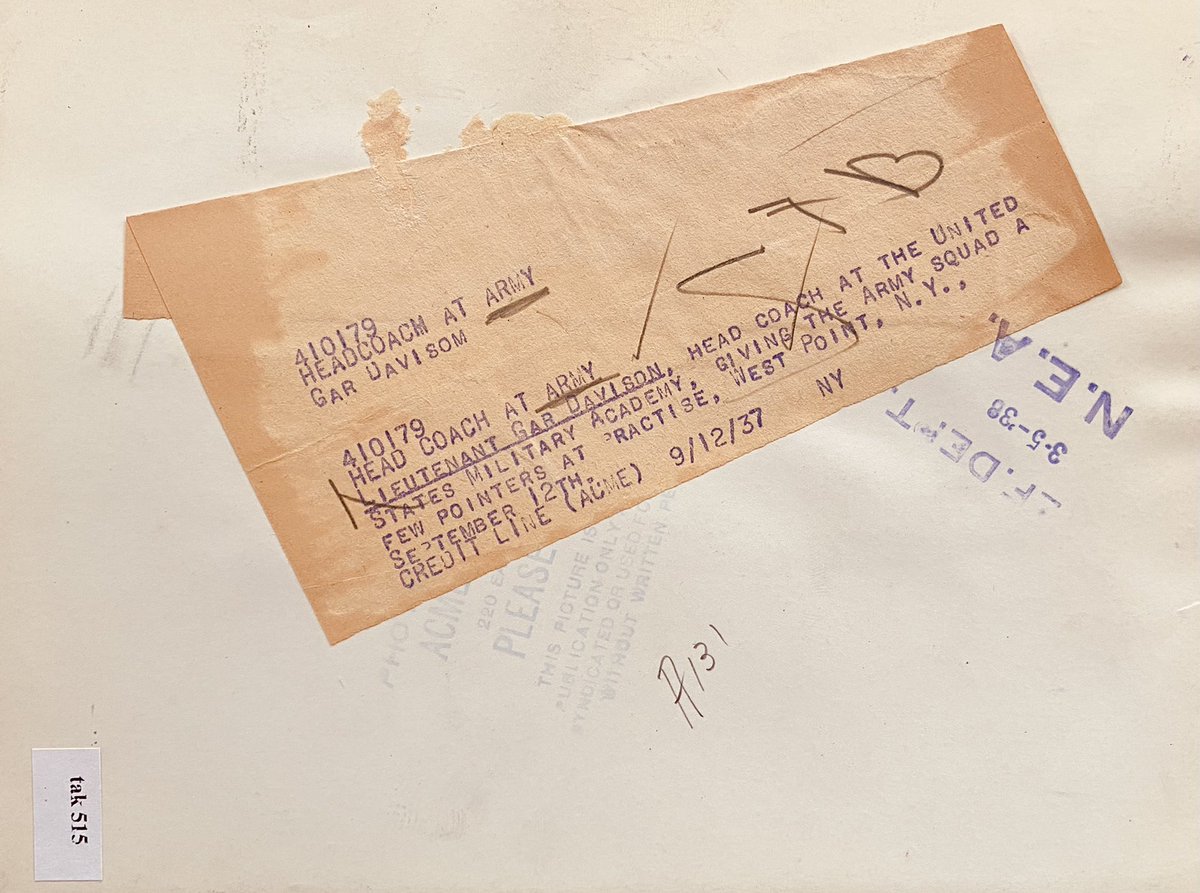 410179
HEADCOACH AT ARMY
GAR DAVISOM
410179
HEAD COACH AT ARMY
LIEUTENANT GAR DAVISON, HEAD COACH AT THE UNITED
STATES MILITARY ACADEMY, GIVING THE ARMY SQUAD A
FEW POINTERS AT PRACTISE, WEST POINT, N.Y.,
SEPTEMBER 12TH.
CREDIT LINE (ACME) 9/12/37 NY
N.E.A.
3-5-38
F. DEPT
ACME
220 E
PLEASE
THIS PICTURE IS
PUBLICATION ONLY
SYNDICATED OR USED FO
WITHOUT WRITTEN PE
A131
tak 515